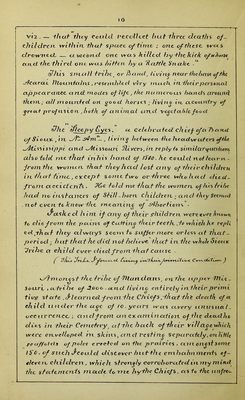 10
viz. — that "they could recollect but three deaths of
children within that space of time; one of these was
drowned — a second one was killed by the kick of a horse
and the third one was bitten by a Rattle Snake."
This small tribe, or Band, living near the base of the
Acarai Mountains, resembled very much, in their personal
appearance and modes of life, the numerous bands around
them; all mounted on good horses; living in a country of
great profusion, both of animal and vegetable food
The "Sleepy Eyes," a celebrated chief of a Band
of Sioux, in Nth Amca, living between the headwaters of the
Mississippi and Missouri Rivers, in reply to similar questions,
also told me that in his band of 1500. he could not learn
from the women that they had lost any of their children
in that time, except some two or three who had died
from accidents. He told me that the women of his tribe
had no instances of Still-born children; and they seemed
not even to know the meaning of "Abortion".
I asked him if any of their children were ever known
to die from the pains of cutting their teeth, to which he repli
ed, that they always seem to suffer more or less at that
period; but that he did not believe that in the whole Sioux
Tribe a child ever died from that cause.
(This Tribe I found living in their primitive condition)
Amongst the tribe of Mandans, on the upper Mis
souri, a tribe of 2000 and living entirely in their primi
tive state, I learned from the Chiefs, that the death of a
child under the age of 10. years was a very unusual
occurrence; and from an examination of the dead bo
dies in their Cemetery, at the back of their village which
were enveloped in skins, and resting separately, on little
scaffolds of poles erected on the prairies, amongst some
150. of such I could discover but the embalmments of
eleven children, which strongly corroborated in my mind
the statements made to me by the Chiefs, as to the unfre-